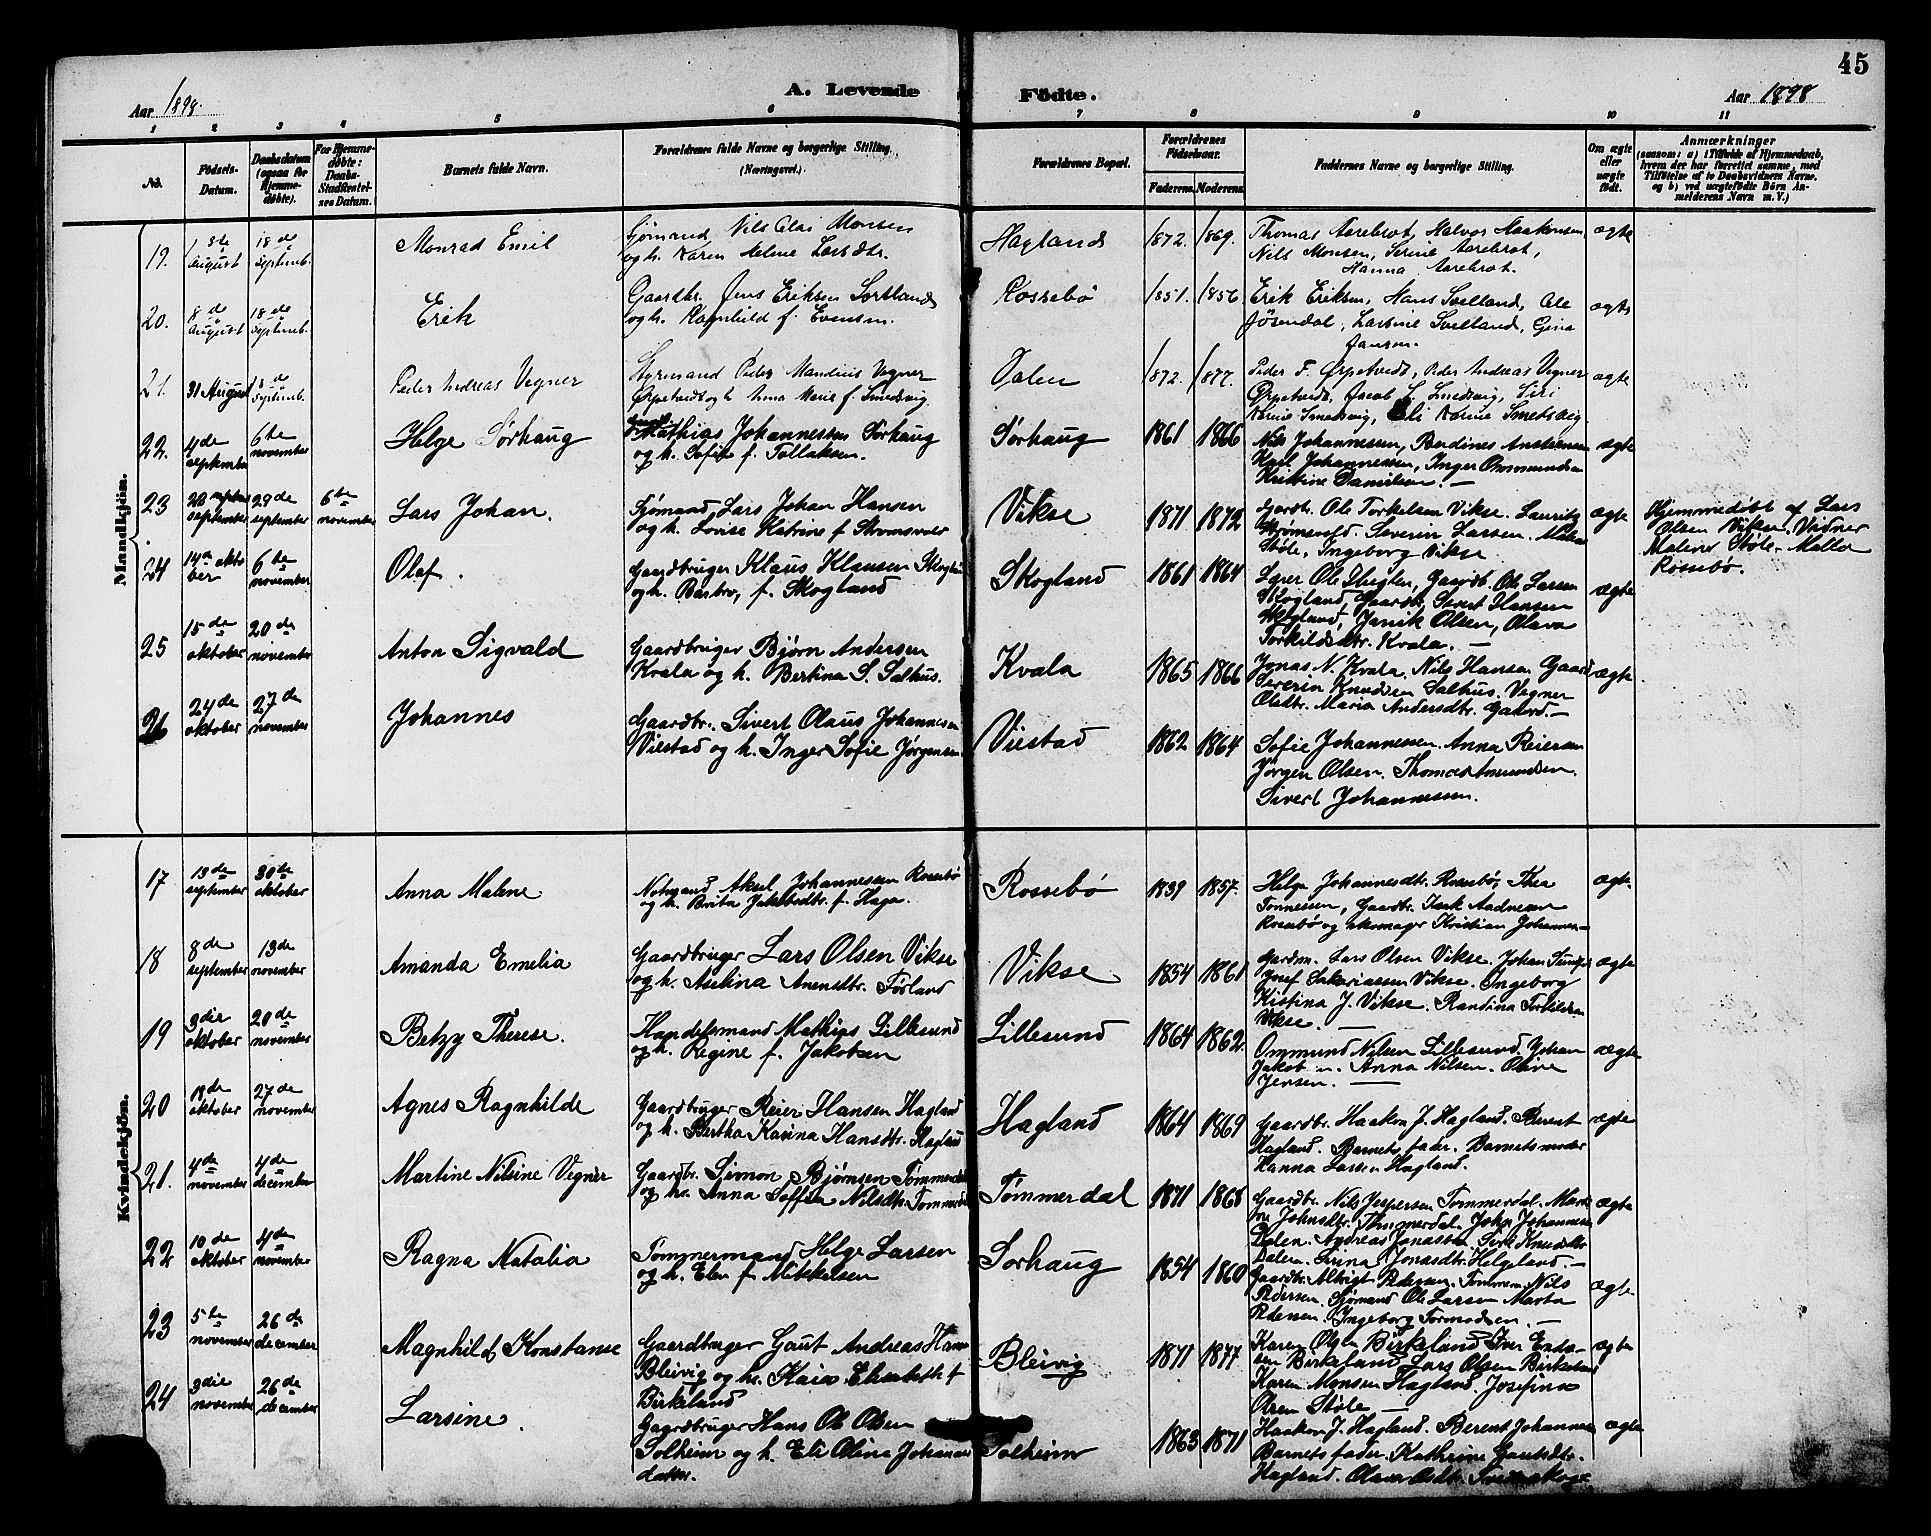 45
Aar 1898.
A. Levende Födte.
Aar 1898
1 2 3 4 5 6 7 8 9 10 11
No.
Födsels-Datum.
Daabsdatum (ogsaa for Hjemme-døbte).
For Hjemme-døbte: Daabs-Stadfæstel-ses Datum.
Barnets fulde Navn.
Forældrenes fulde Navne og borgerlige Stilling. (Næringsvei.)
Forældrenes Bopæl.
Forældrenes Födselsaar.
Faderens. Moderens.
Faddernes Navne og borgerlige Stilling.
Om ægte eller uægte født.
Anmærkninger
(saasom: a) i Tilfælde af Hjemmedaab, hvem der har forrettet samme, med Tilføielse af to Daabsvidners Navne, og b) ved uægtefødte Börn Anmelderens Navn m. V.)
Mandkjön.
19. 1ste August 18de Septemb. Monrad Emil
Sjømand Nils Olai Monsen
og h. Karen Helene Larsdtr.
Hagland 1872. 1869.
Thomas Aarebrot, Halvor Haakonsen,
Nils Monsen, Serine Aarebrot,
Hanna Aarebrot.
ægte
20. 8de August 18de Septemb. Erik
Gaardbr. Jens Eriksen Sortland
og h. Ragnhild f. Evensen.
Rossebø 1851. 1856.
Erik Eriksen, Hans Svelland, Ole
Jøsendal, Larsine Svelland, Gina
Jansen.
ægte
21. 31 August 18de Septemb. Peder Andreas Vegner
Styrmand Peder Mandius Vegner
Ørpetvedt og h. Anna Marie f. Smedsvig.
Dalen 1872. 1877.
Peder F. Ørpetvedt, Peder Andreas Vegner
Ørpetvedt, Jacob L. Smedsvig, Siri
Karine Smedsvig, Eli Karine Smetsvig.
ægte
22. 4de september 6te november Helge Sørhaug
Mathias Johannessen Sørhaug
og h. Sofie f. Tollaksen.
Sørhaug 1861 1866
Nils Johannessen, Berdines Anstensen
Karl Johannessen, Inger Ommundsen
Kristine Danielsen. —
ægte
23 september 29de september 6te november Lars Johan.
Sjømand Lars Johan Hansen
og h. Lovise Katrine f
Vikse 1871 1872
Gardb. Ole Torkelsen Vikse. Laurits
Strømsvold. Severin Larsen. Malene
Støle, Ingeborg Vikse
ægte
Hjemmedøbt af Lars
Olsen Vikse. Vidner
Malene Støle. Malla
Røssebø.
24 14de oktober 6te november Olaf.
Gaardbruger Klaus Klausen Skogland
og h. Barbro, f. Skogland
Skogland 1861 1864
Lærer Ole Gaardb. Ole Larsen
Skogland, Gaardb. Sivert Hansen
Skogland, Janik Olsen, Olava
Torkildsdtr. Kvala. —
ægte
25 15de oktober 20de november Anton Sigvald
Gaardbruger Bjørn Andersen
Kvala og h. Bertina S. Salhus.
Kvala 1865 1866
Jonas N. Kvala. Nils Hansen Gaard
Severin Knudsen Salhus. Vegner
Olsdtr. Maria Andersdtr. Gaard. —
ægte
26 24de oktober 27de november Johannes
Gaardbr. Sivert Olaus Johannesen
Viestad og h. Inger Sofie Jørgensen
Viestad 1862 1864
Sofie Johannessen. Anna Reiersen
Jørgen Olsen. Thomas Amundsen.
Sivert Johannessen.
Kvindekjön.
17 13de september 30te oktober Anna Malene
Notmand Aksel Johannessen Rossebø
og h. Brita Jakobsdtr. f. Haga.
Rossebø 1839 1857.
Helga Johannesdtr. Rossebø, Thea
Tonnessen, Gaardbr. Isak Aadnesen
Rossebø og skomager Kristian Johannes—
ægte
18 8de september 13de november Amanda Emelia
Gaardbruger Lars Olsen Vikse
og h. Aselina Anensdtr. Førland
Vikse 1854 1861
Gardm. Lars Olsen Vikse. Johan
Josef Sakariassen Vikse. Ingeborg
Kistina J. Vikse. Randina Torkildsen
Vikse. —
ægte
19 3die oktober 20de november Betzy Therese.
Handelsmand Mathias Lillesund
og h. Regine f. Jakobsen
Lillesund 1864 1862.
Ommund Nilsen Lillesund. Johan
Jakobsen. Anna Nilsen. Oline
Jensen. —
ægte
20 19de oktober 27de november Agnes Ragnhilde
Gaardbruger Reier Hansen Hagland
og h. Bertha Karina Hansdtr. Hagland
Hagland 1864 1869
Gaardbr. Haakon J. Hagland. Berent
Hagland. Barnets fader. Barnets moder
Hanna Larsen Hagland.
ægte
21. 4de november 4de december Martine Nilsine Vegner
Gaardbr. Simon Bjørnsen Tømmerdal
og h. Anna Soffia Nilsdtr. Tømmerdal
Tømmerdal 1871 1868
Gaardbr. Nils Jespersen Tommerdal. Mart
Johnsdtr. Tømmerdal. John Johannessen
Dalen. Andreas Jonassen. Siri Knudsdtr
Dalen. Sirina Jonasdtr. Helgeland. —
ægte
22 10de oktober 4de november Ragna Natalia
Tømmermand Helge Larsen
og h. Elen f Mikkelsen
Sørhaug 1854 1860
Gaardbr. Albrigt Pedersen. Tommerm. Nils
Pedersen. Sjømand Ole Larsen Marta
Pedersen Ingeborg Tormodsen. —
ægte
23 5te november 26de december Magnhild Konstanse
Gaardbruger Gaut Andreas Hansen
Bleivig og h. Kaia Elisabeth f
Birkeland
Bleivig 1871 1877
Karen Olsen Birkeland Iver Enda-
sen Birkeland Lars Olsen Birkeland
Karen Monsen Hagland. Josefina
Olsen Støle —
ægte
24 3die november 26de december Larsine.
Gaardbruger Hans Ol. Olsen
Solheim og h. Eli Olina Johannes
datter.
Solheim 1863 1871
Haakon J. Hagland. Berent Johannes
Barnets fader. Kathrine Gautsdtr.
Hagland. Olava Olsdtr.
ægte